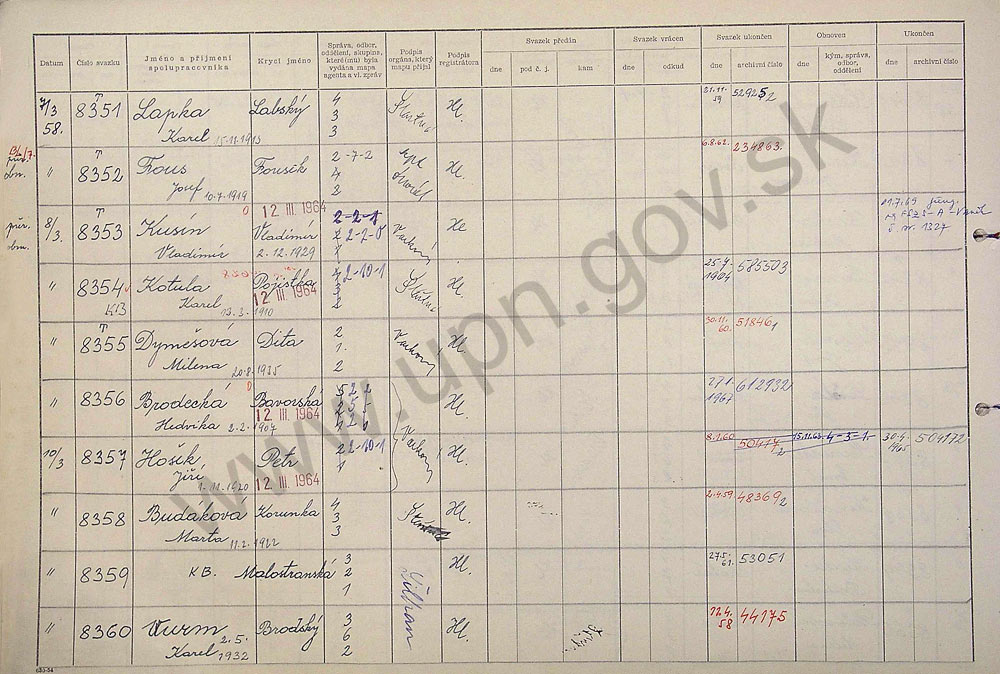 Datum Číslo svazku Jméno a příjmení spolupracovníka Krycí jméno Správa, odbor, oddělení, skupina, které(mu) byla vydána mapa agenta a vl. zpráv Podpis orgána, který mapu přijal Podpis registrátora Svazek předán Svazek vrácen Svazek ukončen Obnoven Ukončen
dne pod č. j. kam dne odkud dne archivní číslo dne kým, správa, odbor, oddělení dne archivní číslo
7/3 58. 8351 Lapka Labský 4 3 3 Hl. 21.11. 59 52925 2
Karel 15.11.1913
" 8352 Fous Fousek 2-7-2 4 2 Hl. 6.8.62. 234863.
Josef 10.7.1919
8/3. 8353 Kusín Vladimír 12 III. 1964 2-2-1 Hl
Vladimír 2.12.1929
" 8354 Kotula Pojistka 12 III. 1964 2-10-1 Hl. 1964 585503
Karel 13.3.1910
" 8355 Dymešová Dita 2 1. 2 Hl. 30.11. 60. 51846 1
Milena 20.8.1935
" 8356 Brodecká Bavorská 12 III. 1964 Hl. 1967 612932
Hedvika 2.2.1907
10/3 8357 Hošek Petr 12 III. 1964 2-10-1 Hl. 8.1.60 50417 2 15.11.63 4-3-1- 30.4. 1965 504172
Jiří 1.11.1920
" 8358 Budáková Korunka 4 3 3 Hl. 2.4.59 48369 2
Marta 11.2.1922
" 8359 KB. Malostranská 3 2 1 Hl. 27.5. 61. 53051
" 8360 Wurm Brodský 3 6 2 Hl. 22.4. 58 44175
Karel 2.5. 1932
www.upn.gov.sk